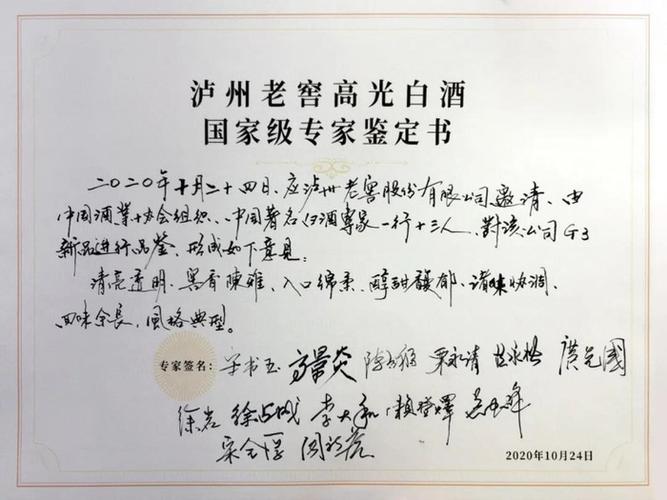 泸州老窖高光白酒
国家级专家鉴定书
二〇二〇年十月二十四日、应泸州老窖股份有限公司邀请、由
中国酒业协会组织、中国著名白酒专家一行十三人、对该公司G3
新品进行品鉴、形成如下意见：
清亮透明、窖香陳雅、入口绵柔、醇甜馥郁、诸味协调、
回味余長、風格典型。
专家签名: 高景炎 栗永清
徐岩 徐占成 李大和 賴登燡
2020年10月24日